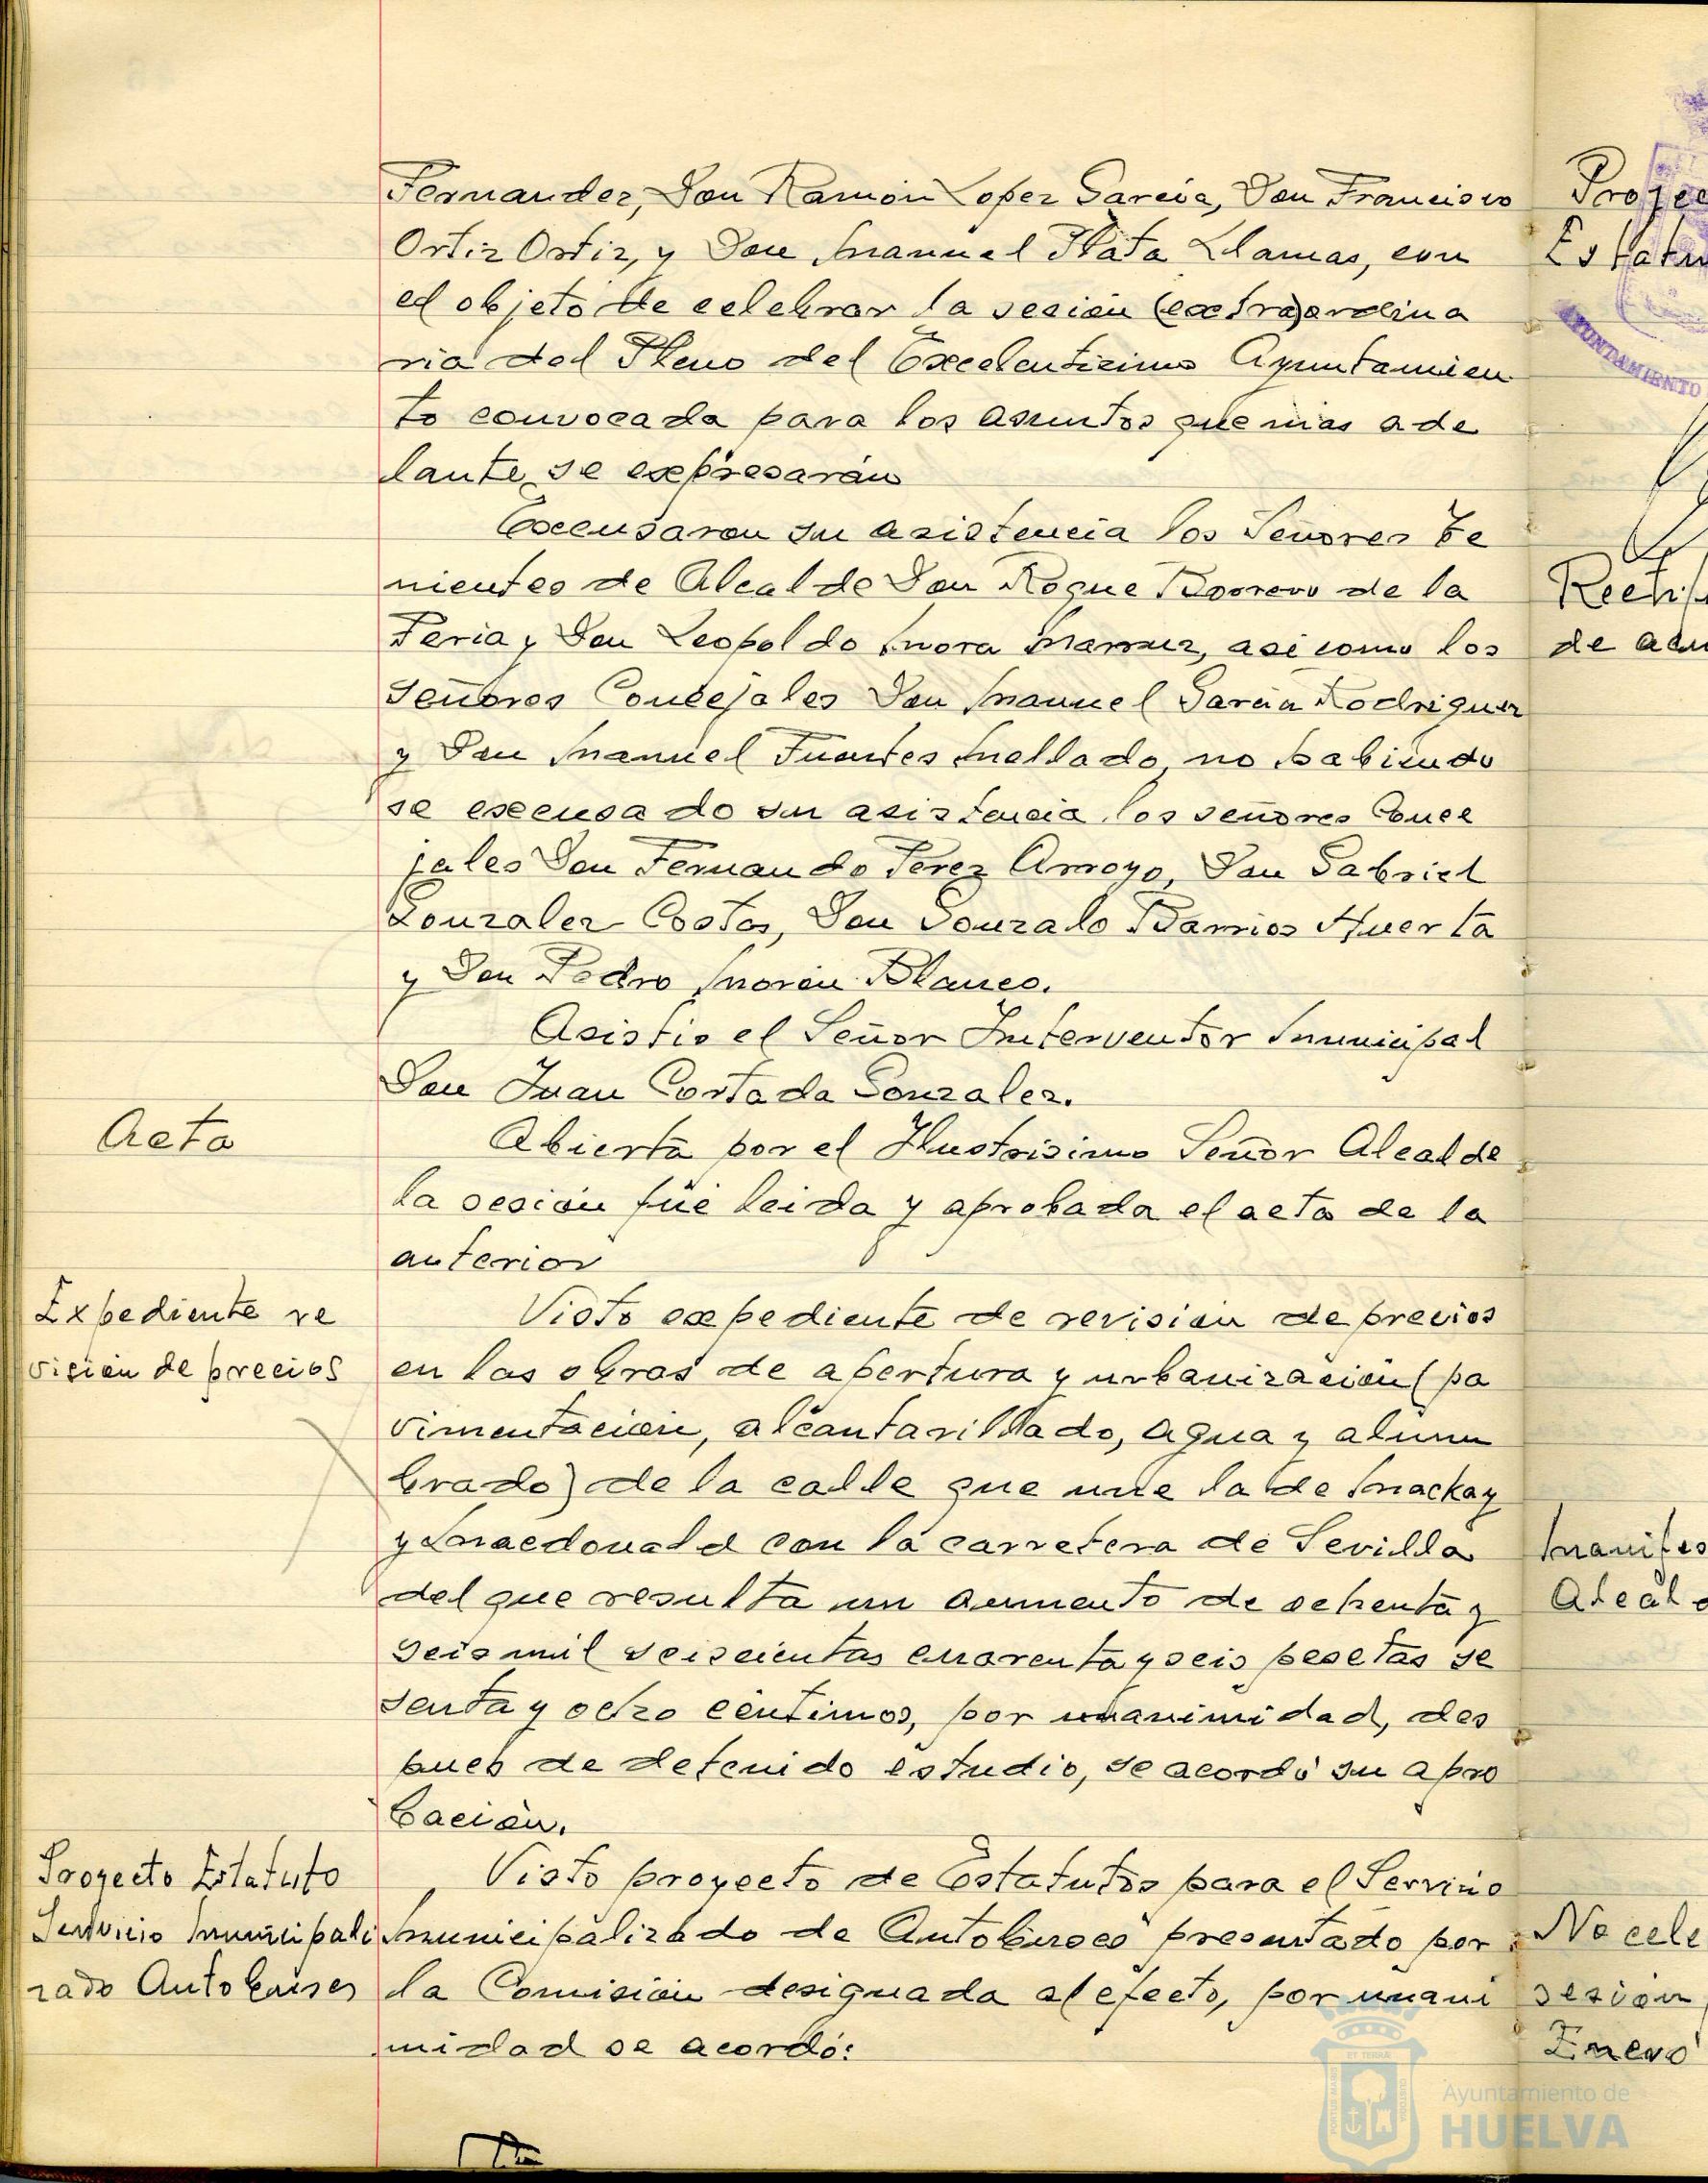 Fernandez, Don Ramón Lopez García, Don Francisco
Ortiz Ortiz, y Don Manuel Plata Llamas, con
el objeto de celebrar la sesión (extra)ordina
ria del Pleno del Excelentisimo Ayuntamien
to convocada para los asuntos que mas ade
lante se expresarán
Excusaron su asistencia los Señores Te
nientes de Alcalde Don Roque Borrero de la
Feria y Don Leopoldo Mora asi como los
señores Concejales Don Manuel García Rodriguez
y Don Manuel Fuentes Mellado, no habiendo
se excusado su asistencia los señores Conce
jales Don Fernando Perez Arroyo, Don Gabriel
Gonzalez Costas, Don Gonzalo Barrios Huerta
y Don Pedro Morón Blanco.
Asistio el Señor Interventor Municipal
Don Juan Cortada Gonzalez.
Acta
Abierta por el Ilustrisimo Señor Alcalde
la sesión fué leida y aprobada el acta de la
anterior
Expediente re
visión de precios
Visto expediente de revisión de precios
en las obras de apertura y urbanización (pa
vimentación, alcantarillado, agua y alum
brado) de la calle que une la de Mackay
y Macdonald con la carretera de Sevilla
del que resulta un aumento de ochenta y
seis mil seiscientas cuarenta y seis pesetas se
senta y ocho céntimos, por unanimidad, des
pues de detenido estudio, se acordó su apro
bación.
Proyecto Estatuto
Servicio Municipali
zado Autobuses
Visto proyecto de Estatutos para el Servicio
Municipalizado de Autobuses presentado por
la Comisión designada al efecto, por unani
midad se acordó:
Proyec
Estatu
AYUNTAMIENTO
Rectif
de acu
Manifes
Alcald
No cele
sesión
Enero
Ayuntamiento de
HUELVA